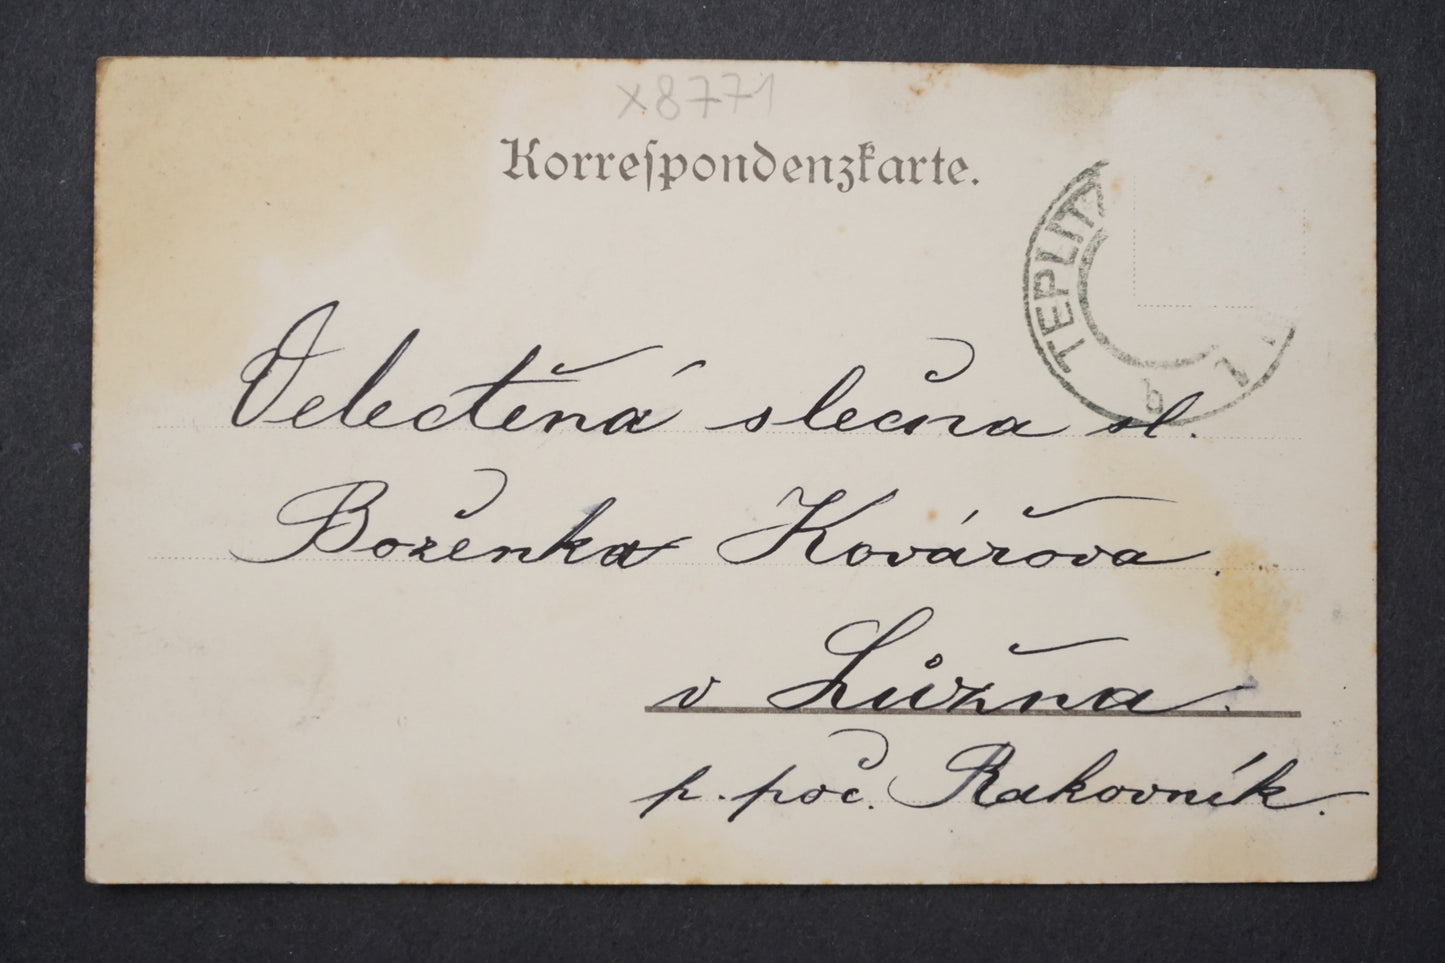 x8771
Korreſpondenzkarte.
TEPLITZ
b 1
Velectěná slečna sl.
Boženka Kovářova.
v Lůžna.
p. poč. Rakovník.